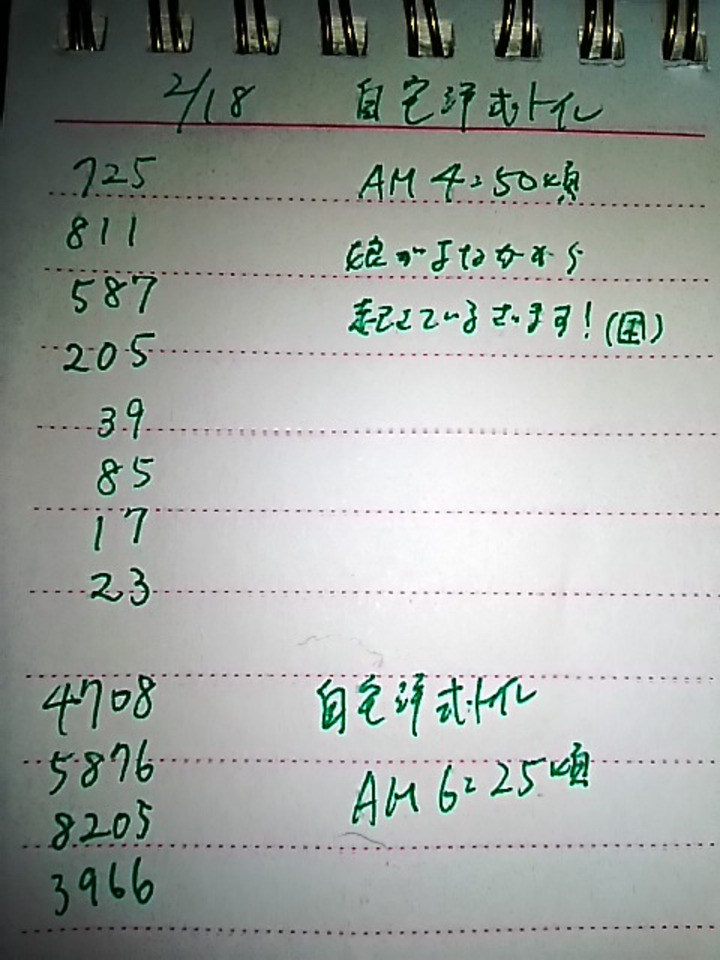 2/18 自宅洋式トイレ
725 AM 4:50頃
811
娘がよなかから
587
起きているざいます!(困)
205
39
85
17
23
4708 自宅洋式トイレ
5876
AM 6:25頃
8205
3966